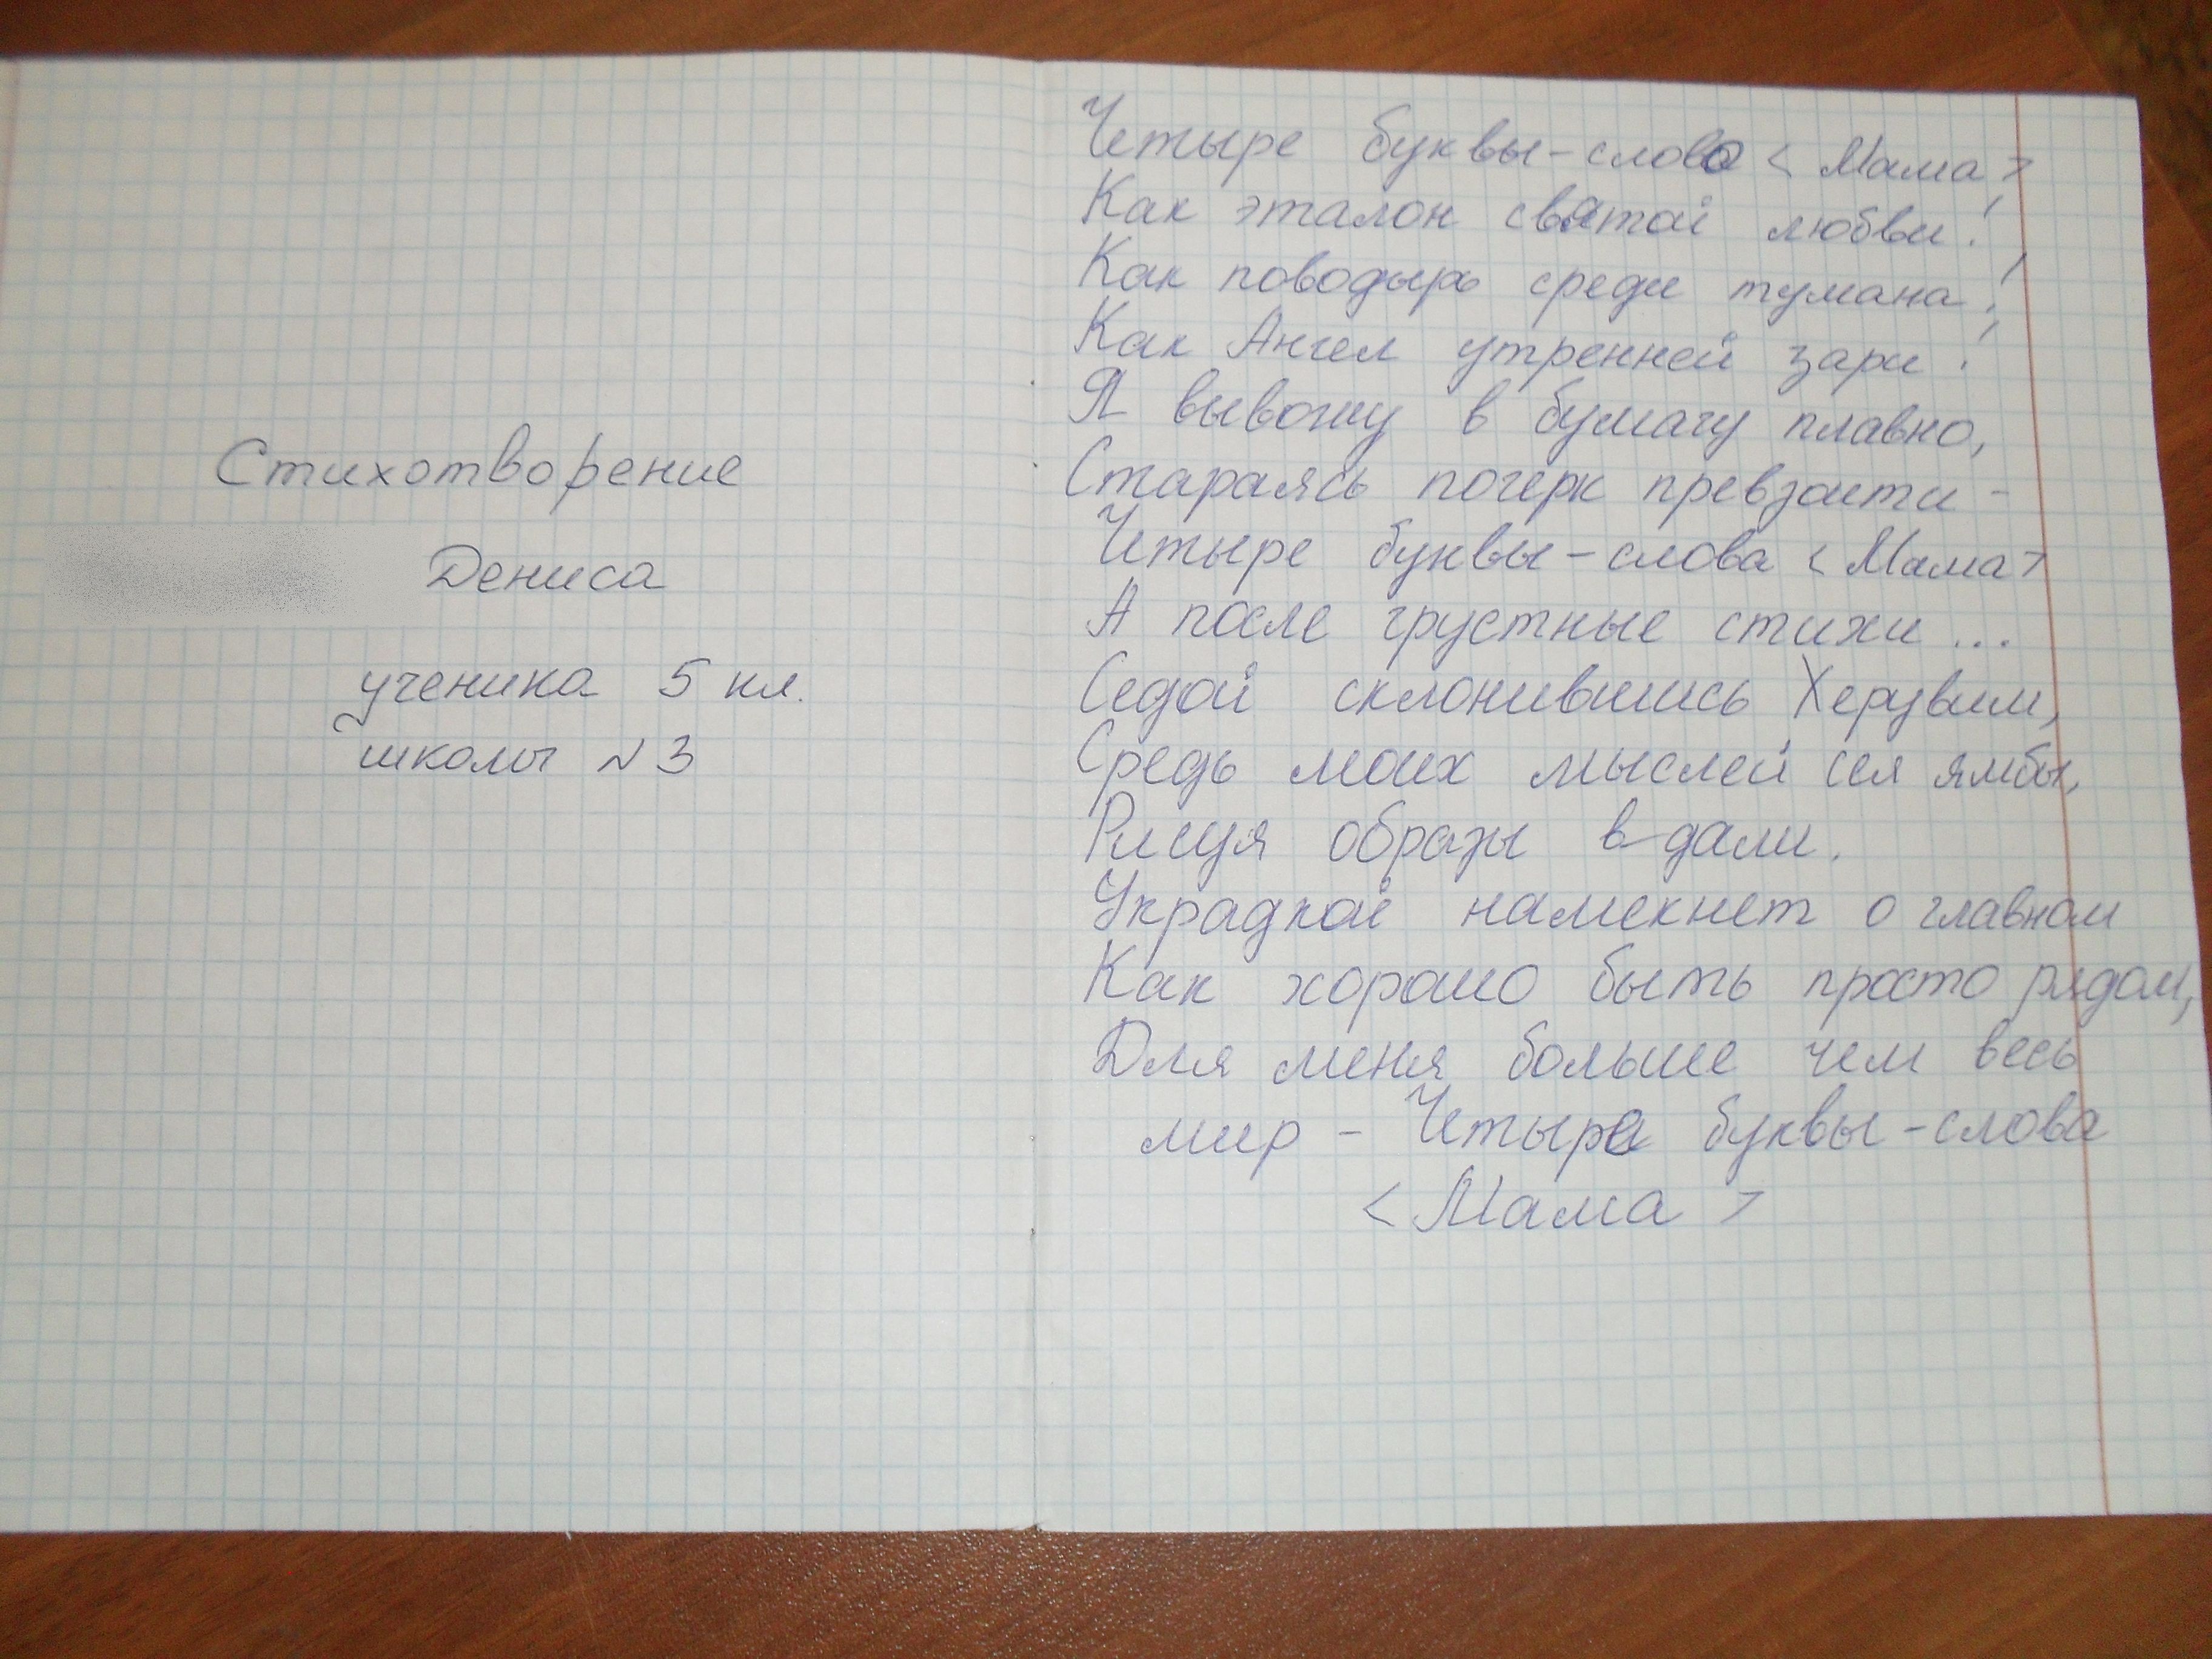 Стихотворение
Дениса
ученика 5 кл.
школы №3
Четыре буквы-слово <Мама>
Как эталон святой любви!
Как поводырь среди тумана!
Как Ангел утренней зари!
Я вывожу в бумагу плавно,
Стараясь почерк превзойти -
Четыре буквы-слова <Мама>
А после грустные стихи ...
Седой склонившись Херувим,
Средь моих мыслей сея ямбы,
Рисуя образы в дали.
Украдкой намекнет о главном
Как хорошо быть просто рядом,
Для меня больше чем весь
мир - Четыре буквы-слова
<Мама>